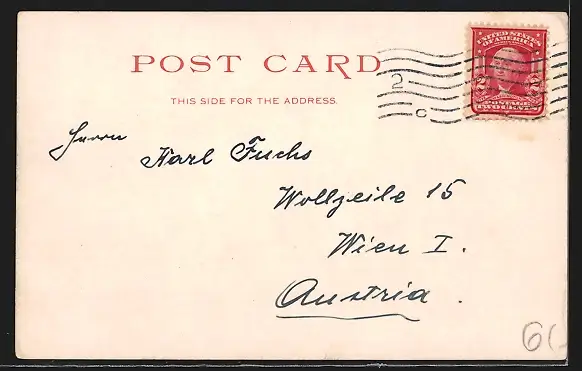 POST CARD
THIS SIDE FOR THE ADDRESS.
UNITED STATES
OF AMERICA
POSTAGE
TWO CENTS
2
C
Herrn
Karl Fuchs
Wollzeile 15
Wien I.
Austria.